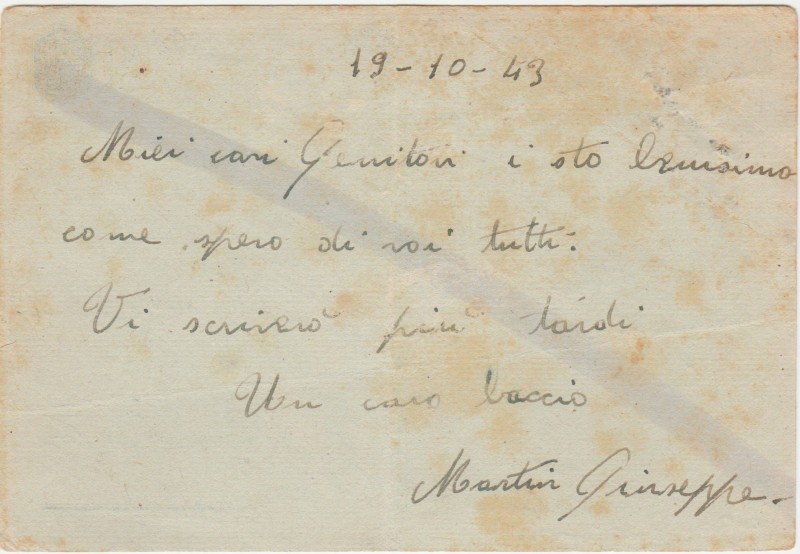 19-10-43
Miei cari Genitori i sto benisimo
come spero di voi tutti.
Vi scriverò più tardi
Un caro baccio
Martin Giuseppe.